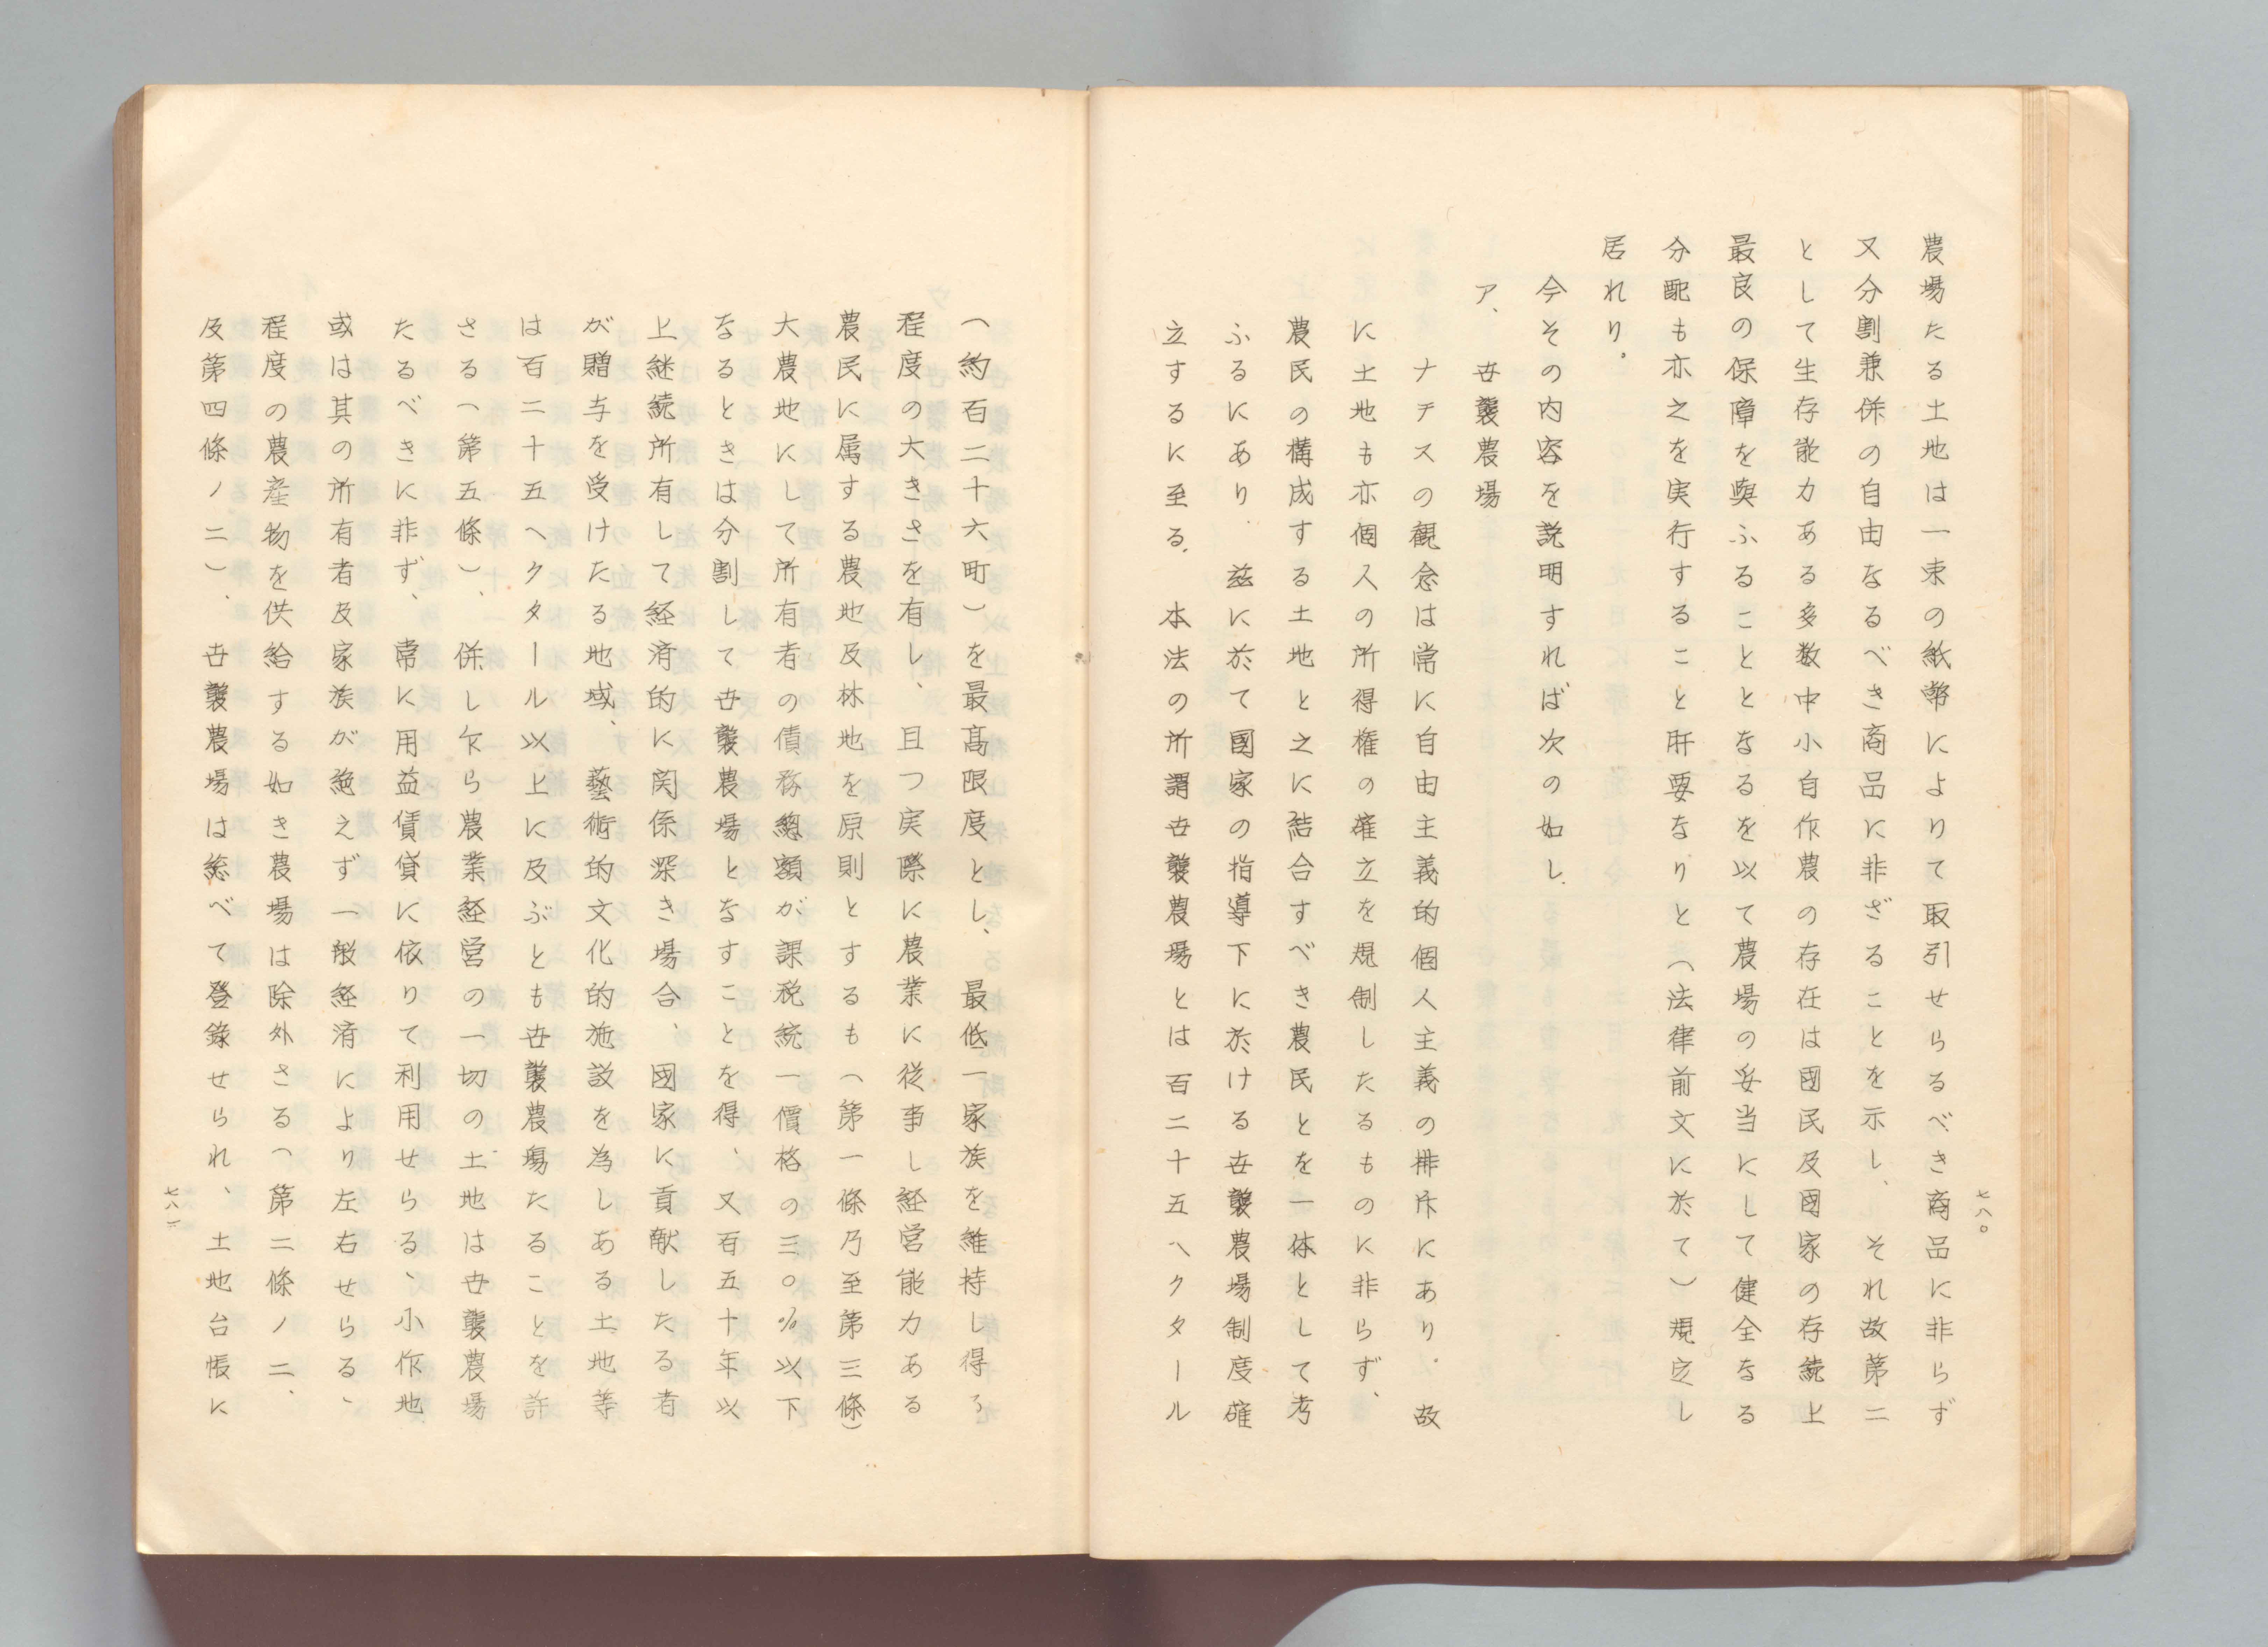 七八〇
農場たる土地は一束の紙幣によりて取引せらるべき商品に非らず
又分割兼併の自由なるべき商品に非ざることを示し、それ故第二
として生存能力ある多数中小自作農の存在は國民及國家の存続上
最良の保障を與ふることとなるを以て農場の妥当にして健全なる
分配も亦之を実行すること肝要なりと（法律前文に於て）規定し
居れり。
今その内容を説明すれば次の如し.
ア、世襲農場
ナチスの観念は常に自由主義的個人主義の排斥にあり.故
に土地も亦個人の所得権の確立を規制したるものに非らず、
農民の構成する土地と之に結合すべき農民とを一体として考
ふるにあり.茲に於て國家の指導下に於ける世襲農場制度確
立するに至る.本法の所謂世襲農場とは百二十五ヘクタール
（約百二十六町）を最高限度とし、最低一家族を維持し得ろ
程度の大きさを有し、且つ実際に農業に従事し経営能力ある
農民に属する農地及林地を原則とするも（第一條乃至第三條）
大農地にして所有者の債務總額が課税統一價格の三〇％以下
なるときは分割して世襲農場となすことを得、又百五十年以
上継続所有して経済的に関係深き場合、國家に貢献したる者
が贈与を受けたる地域、藝術的文化的施設を為しある土地等
は百二十五ヘクタール以上に及ぶとも世襲農場たることを許
さる（第五條）、併し乍ら農業経営の一切の土地は世襲農場
たるべきに非ず、常に用益賃貸に依りて利用せらる、小作地
或は其の所有者及家族が絶えず一般経済により左右せらる、
程度の農産物を供給する如き農場は除外さる（第二條ノ二、
及第四條ノ二）、世襲農場は総べて登録せられ、土地台帳に
七八一